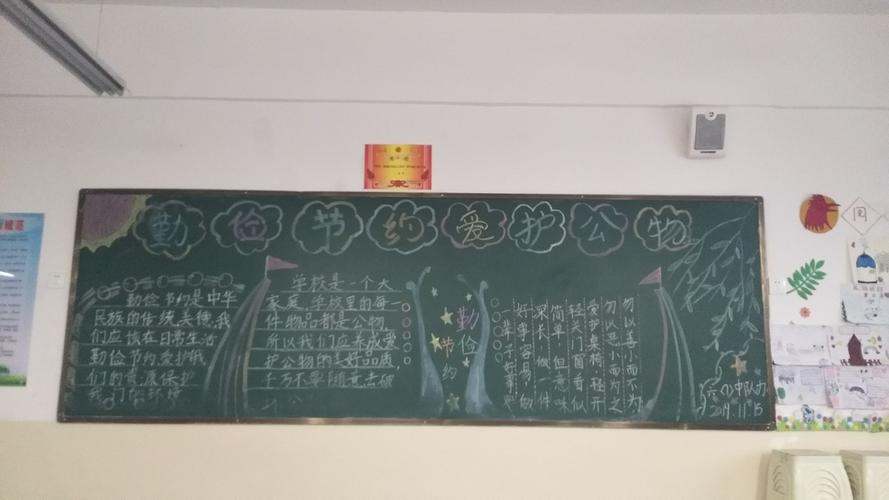 勤俭节约爱护公物
勤俭节约是中华
民族的传统美德,我
们应该在日常生活
勤俭节约爱护我
们的资源保护
我们的环境
学校是一个大
家庭,学校里的每一
件物品都是公物,
所以我们应养成爱
护公物的好品质,
千万不要随意去破
坏公
勤俭
节约
勿以善小而不为
勿以恶小而为之
爱护桌椅,轻开
轻关门窗看似
简单,但意味
深长,做一件
好事容易,做
一辈子好事
(1)中队办
2019.11.15